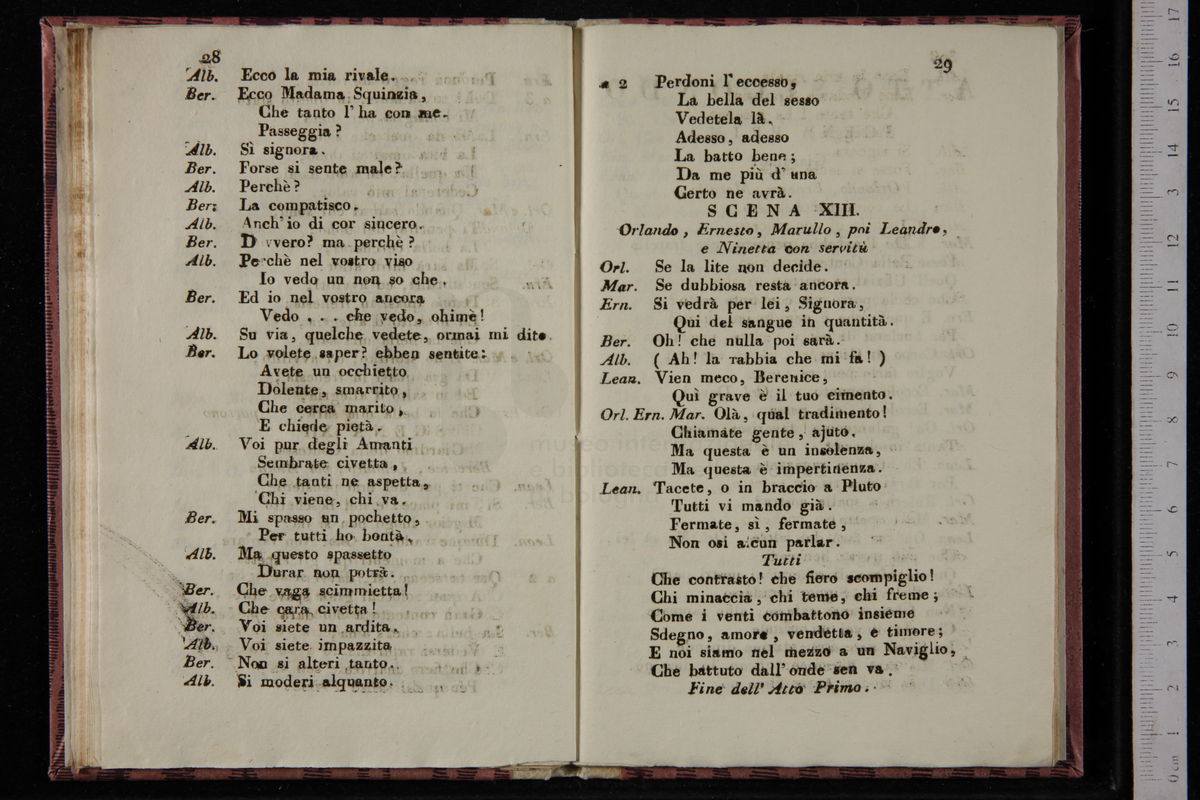 28
Alb. Ecco la mia rivale.
Ber. Ecco Madama Squinzia,
Che tanto l'ha con me.
Passeggia?
Alb. Sì signora.
Ber. Forse si sente male?
Alb. Perchè?
Ber. La compatisco.
Alb. Anch'io di cor sincero.
Ber. D vvero? ma perchè?
Alb. Perchè nel vostro viso
Io vedo un non so che.
Ber. Ed io nel vostro ancora
Vedo . . . che vedo, ohimè!
Alb. Su via, quelche vedete, ormai mi dite.
Ber. Lo volete saper? ebben sentite:
Avete un occhietto
Dolente, smarrito,
Che cerca marito,
E chiede pietà.
Alb. Voi pur degli Amanti
Sembrate civetta,
Che tanti ne aspetta,
Chi viene, chi va.
Ber. Mi spasso un pochetto,
Per tutti ho bontà.
Alb. Ma questo spassetto
Durar non potrà.
Ber. Che vaga scimmietta!
Alb. Che cara civetta!
Ber. Voi siete un ardita.
Alb. Voi siete impazzita
Ber. Non si alteri tanto.
Alb. Si moderi alquanto.
29
a 2 Perdoni l'eccesso,
La bella del sesso
Vedetela là.
Adesso, adesso
La batto bene;
Da me più d'una
Certo ne avrà.
SCENA XIII.
Orlando, Ernesto, Marullo, poi Leandro,
e Ninetta con servitù
Orl. Se la lite non decide.
Mar. Se dubbiosa resta ancora.
Ern. Si vedrà per lei, Signora,
Qui del sangue in quantità.
Ber. Oh! che nulla poi sarà.
Alb. ( Ah! la rabbia che mi fa! )
Lean. Vien meco, Berenice,
Quì grave è il tuo cimento.
Orl. Ern. Mar. Olà, qual tradimento!
Chiamate gente, ajuto.
Ma questa è un insolenza,
Ma questa è impertinenza.
Lean. Tacete, o in braccio a Pluto
Tutti vi mando già.
Fermate, sì, fermate,
Non osi alcun parlar.
Tutti
Che contrasto! che fiero scompiglio!
Chi minaccia, chi teme, chi freme;
Come i venti combattono insieme
Sdegno, amore, vendetta, e timore;
E noi siamo nel mezzo a un Naviglio,
Che battuto dall'onde sen va.
Fine dell'Atto Primo.
0 cm 1 2 3 4 5 6 7 8 9 10 11 12 13 14 15 16 17